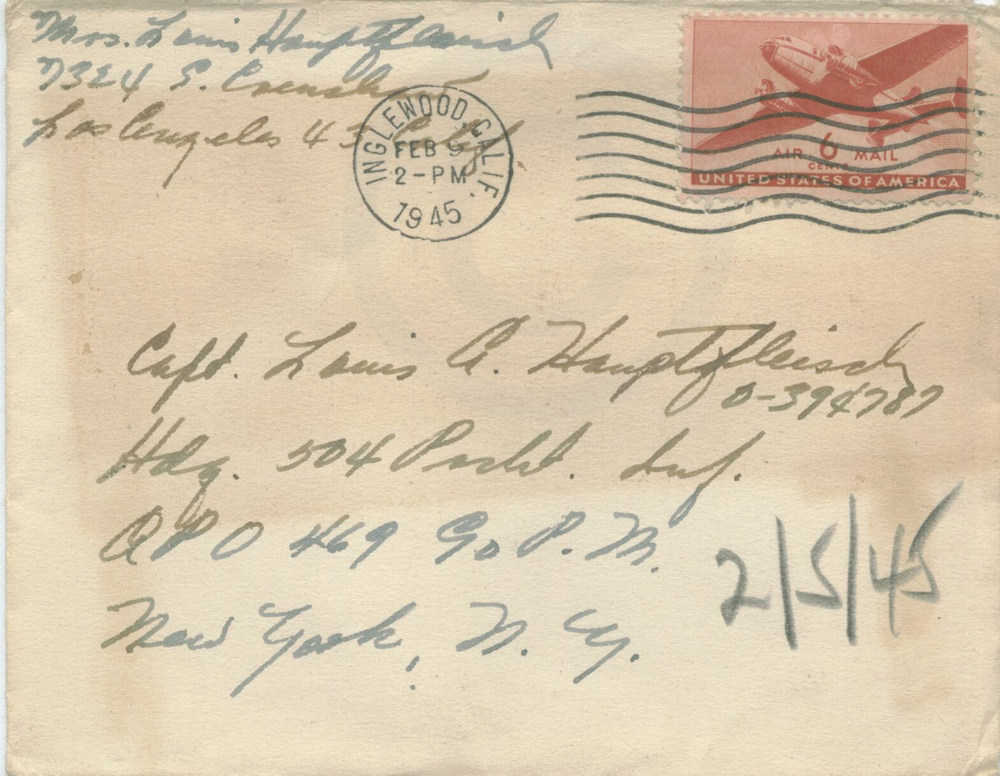 Mrs. Louis Hauptfleisch
7324 S. Crenshaw
Los Angeles 43 Calif.
INGLEWOOD, CALIF.
FEB
2-PM
1945
AIR 6 MAIL
CENTS
UNITED STATES OF AMERICA
Capt. Louis A. Hauptfleisch
O-394787
Hdq. 504 Parcht. Inf.
APO 469 % P.M.
New York, N.Y.
2/5/45